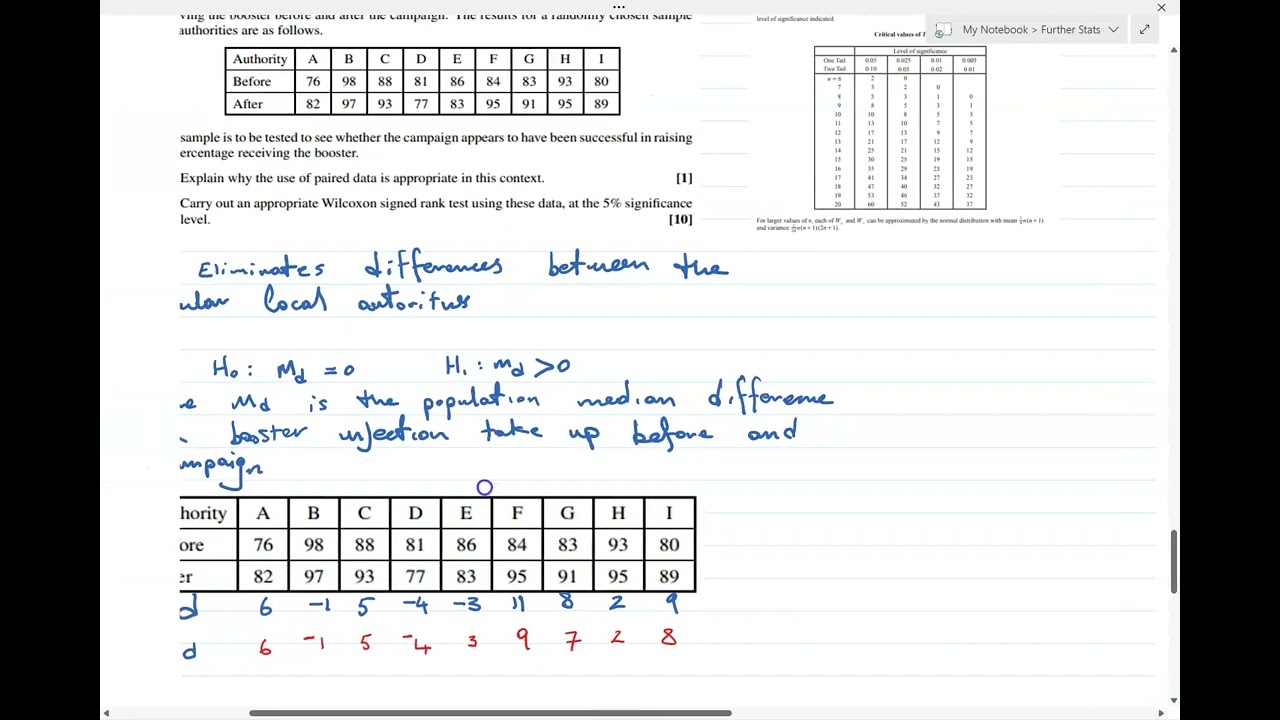 ...
My Notebook > Further Stats
ving the booster before and after the campaign. The results for a randomly chosen sample
authorities are as follows.
Authority A B C D E F G H I
Before 76 98 88 81 86 84 83 93 80
After 82 97 93 77 83 95 91 95 89
sample is to be tested to see whether the campaign appears to have been successful in raising
ercentage receiving the booster.
Explain why the use of paired data is appropriate in this context. [1]
Carry out an appropriate Wilcoxon signed rank test using these data, at the 5% significance
level. [10]
level of significance indicated.
Critical values of T
Level of significance
One Tail 0.05 0.025 0.01 0.005
Two Tail 0.10 0.05 0.02 0.01
n = 6 2 0
7 3 2 0
8 5 3 1 0
9 8 5 3 1
10 10 8 5 3
11 13 10 7 5
12 17 13 9 7
13 21 17 12 9
14 25 21 15 12
15 30 25 19 15
16 35 29 23 19
17 41 34 27 23
18 47 40 32 27
19 53 46 37 32
20 60 52 43 37
For larger values of n, each of W₊ and W₋ can be approximated by the normal distribution with mean ¼n(n + 1)
and variance 1/24 n(n + 1)(2n + 1).
Eliminates differences between the
ular local autoritus
H₀ : M_d = 0 H₁ : m_d > 0
e M_d is the population median difference
booster injection take up before and
mpaign
hority A B C D E F G H I
ore 76 98 88 81 86 84 83 93 80
er 82 97 93 77 83 95 91 95 89
d 6 -1 5 -4 -3 11 8 2 9
d 6 -1 5 -4 3 9 7 2 8